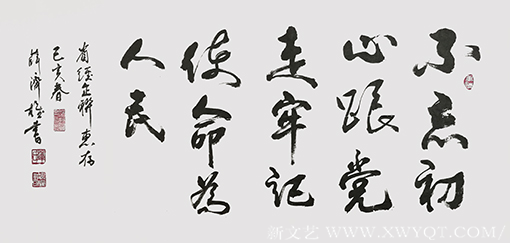 不忘初
心跟党
走牢记
使命為
人民
省經企聯 惠存
己亥春
書
新文艺 WWW.XWYQT.COM/